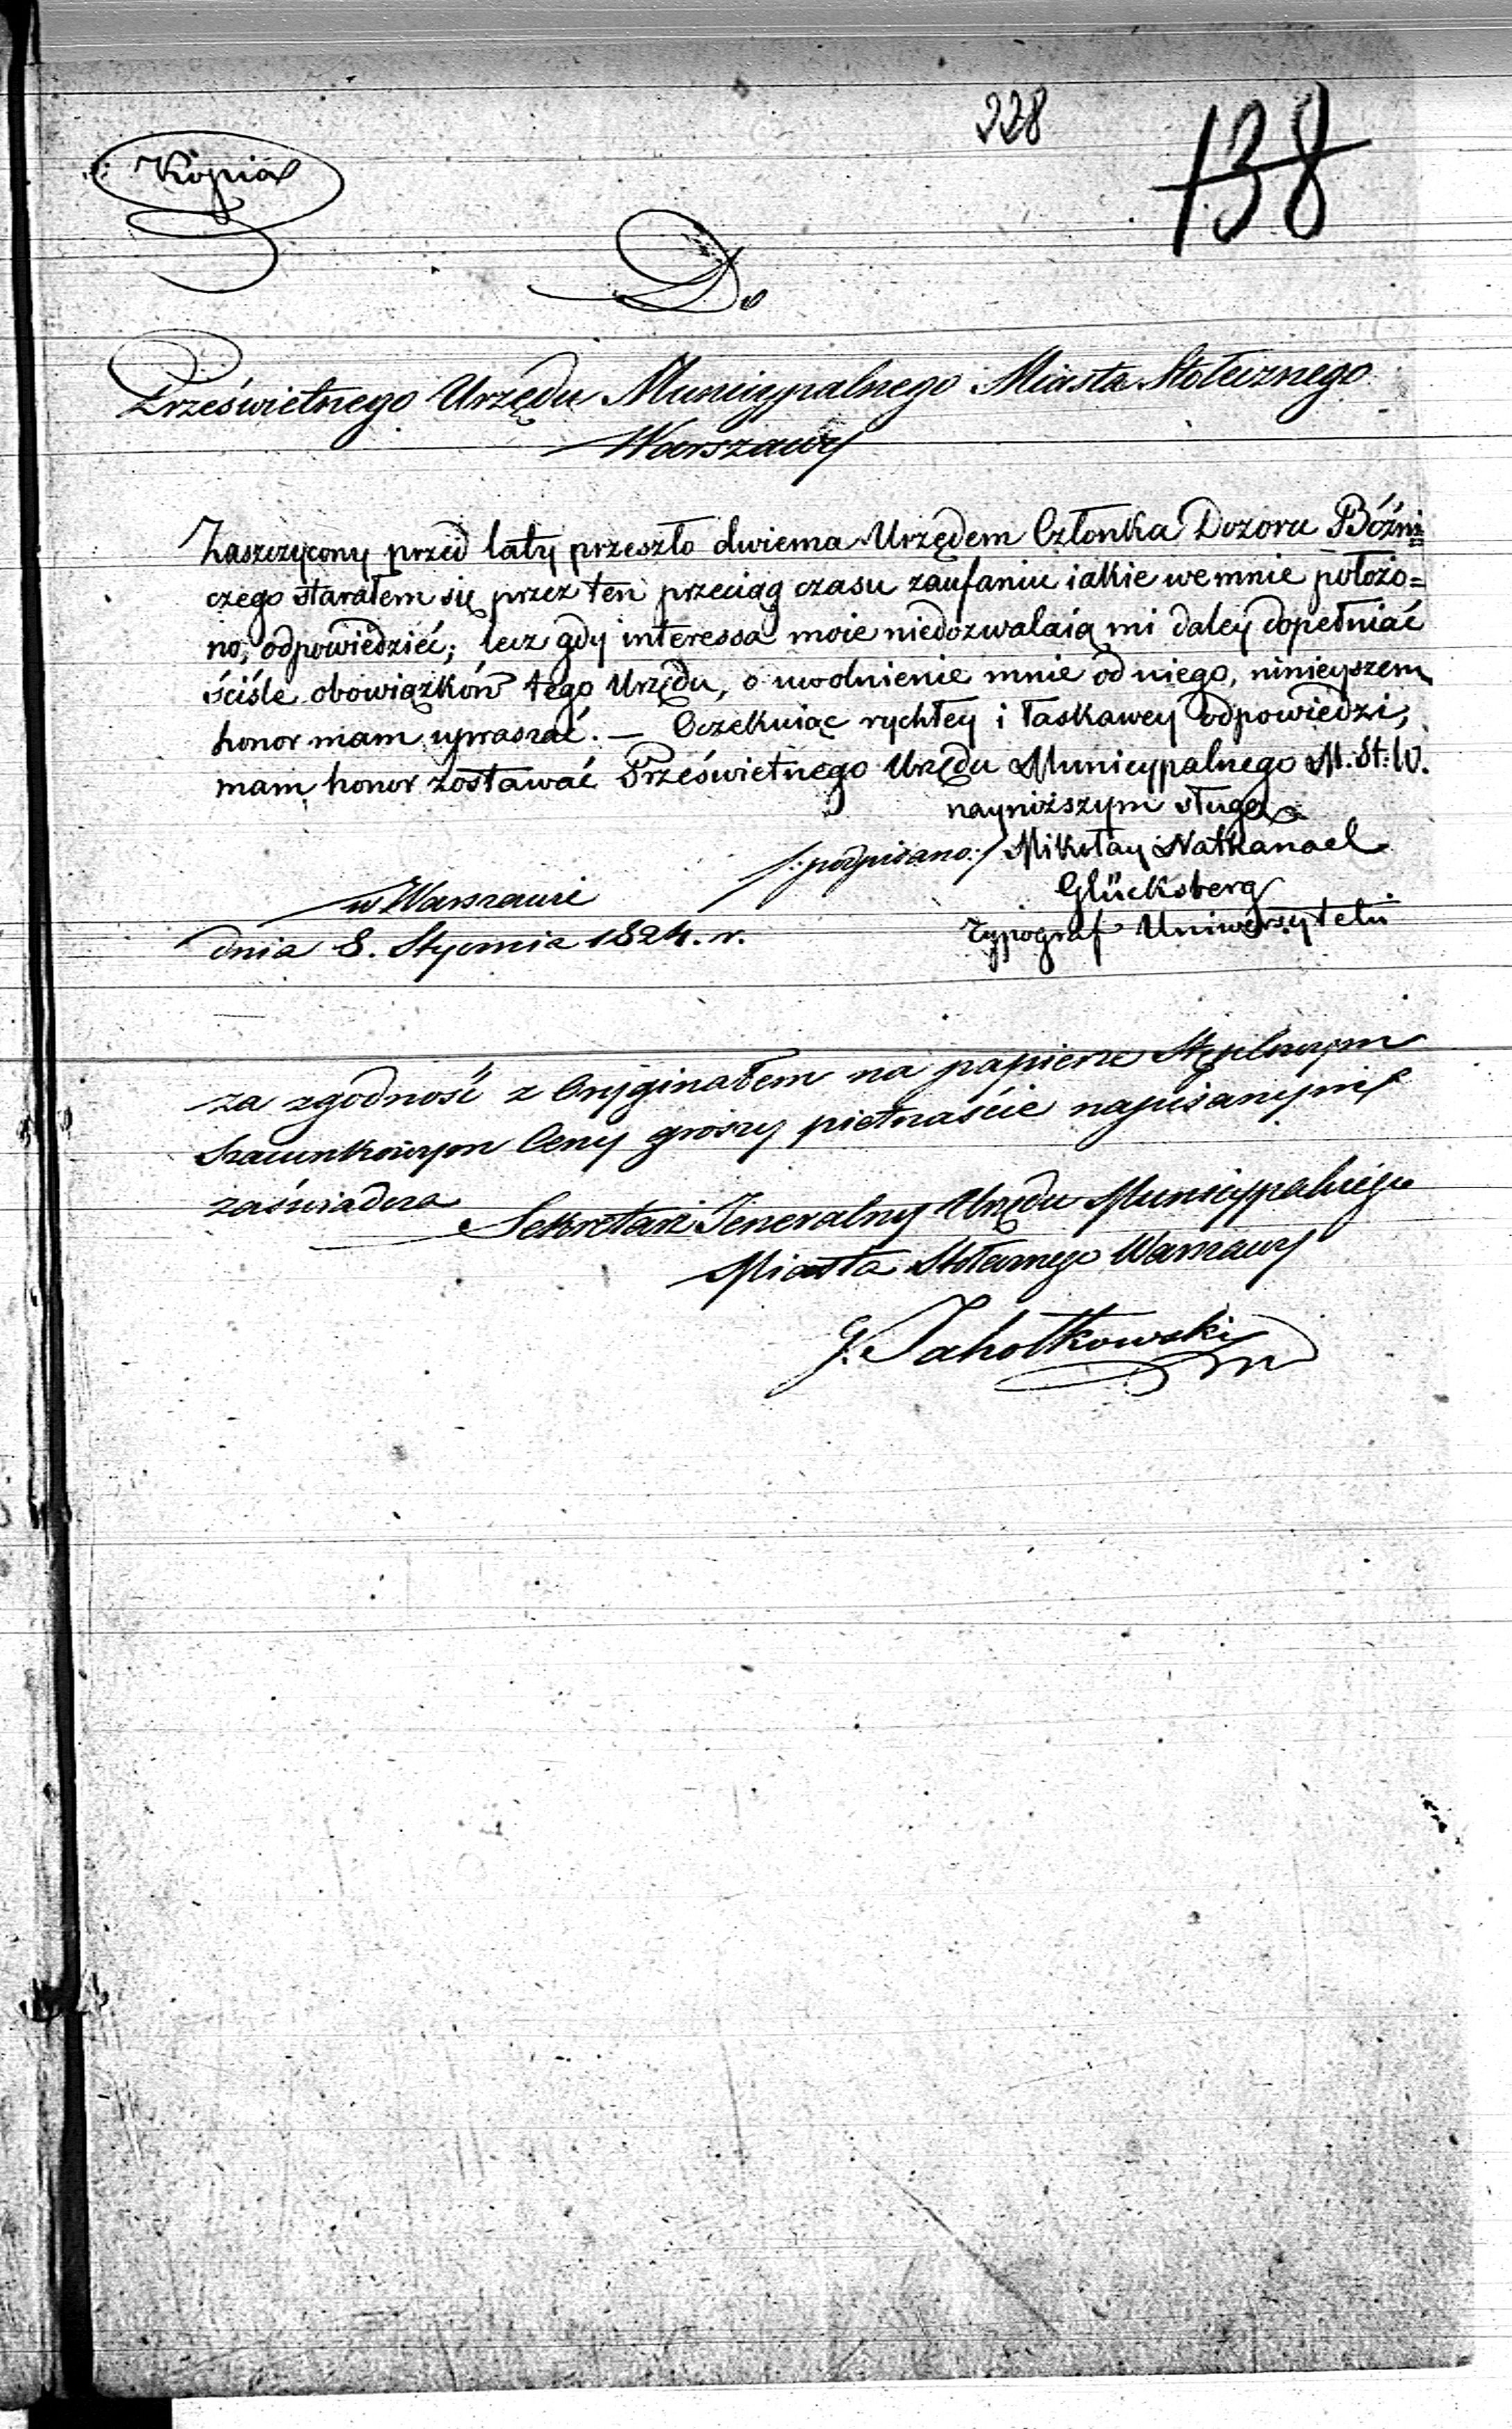 228
138
Kopia
Do
Prześwietnego Urzędu Municypalnego Miasta Stołecznego
Warszawy
Zaszczycony przed laty przeszło dwiema Urzędem Członka Dozoru Bóźni=
czego starałem się przez ten przeciąg czasu zaufaniu iakie we mnie położo=
no, odpowiedzieć; lecz gdy interessa moie niedozwalaią mi daley dopełniać
ściśle obowiązków tego Urzędu, o uwolnienie mnie od niego, ninieyszem
honor mam upraszać. — Oczekuiąc rychłey i łaskawey odpowiedzi,
mam honor zostawać Prześwietnego Urzędu Municypalnego M. St: W.
nayniższym sługą
/:podpisano:/ Mikołay Nathanael
Glücksberg
Typograf Uniwersytetu
w Warszawie
dnia 8. Stycznia 1824. r.
Za zgodność z Oryginałem na papierze Stęplowym
Szacunkowym Ceny groszy pietnaście napisanym
zaświadcza
Sekretarz Jeneralny Urzędu Municypalnego
Miasta Stołecznego Warszawy